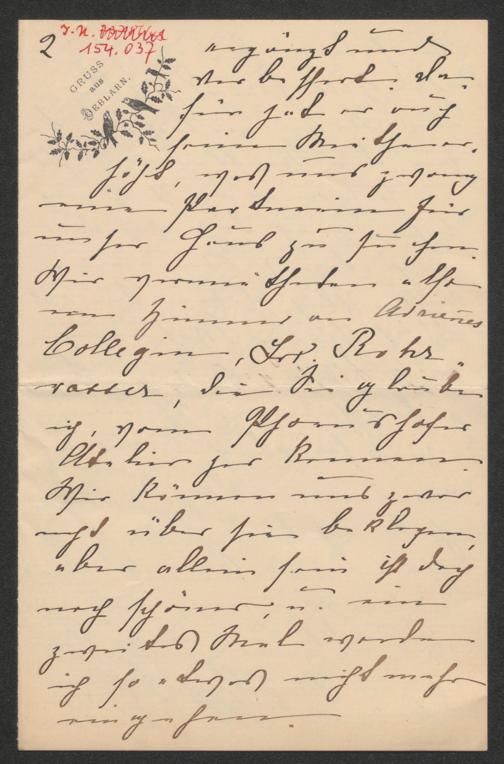 2
J. N.
154.037
GRUSS
aus
OEBLARN.
ergänzt und
verbessert. Da-
für hat er auch
seine Miethe er-
höht, was uns zwang
eine Partnerin für
unser Haus zu suchen.
Wir vermietheten also
ein Zimmer an Adrienes
Collegin, Frl. Rohr-
wasser, die Sie glaube
ich, vom
Atelier her kennen.
Wir können uns zwar
nicht über sie beklagen,
aber allein sein ist doch
noch schöner, u. ein
zweites Mal werde
ich so etwas nicht mehr
eingehen.